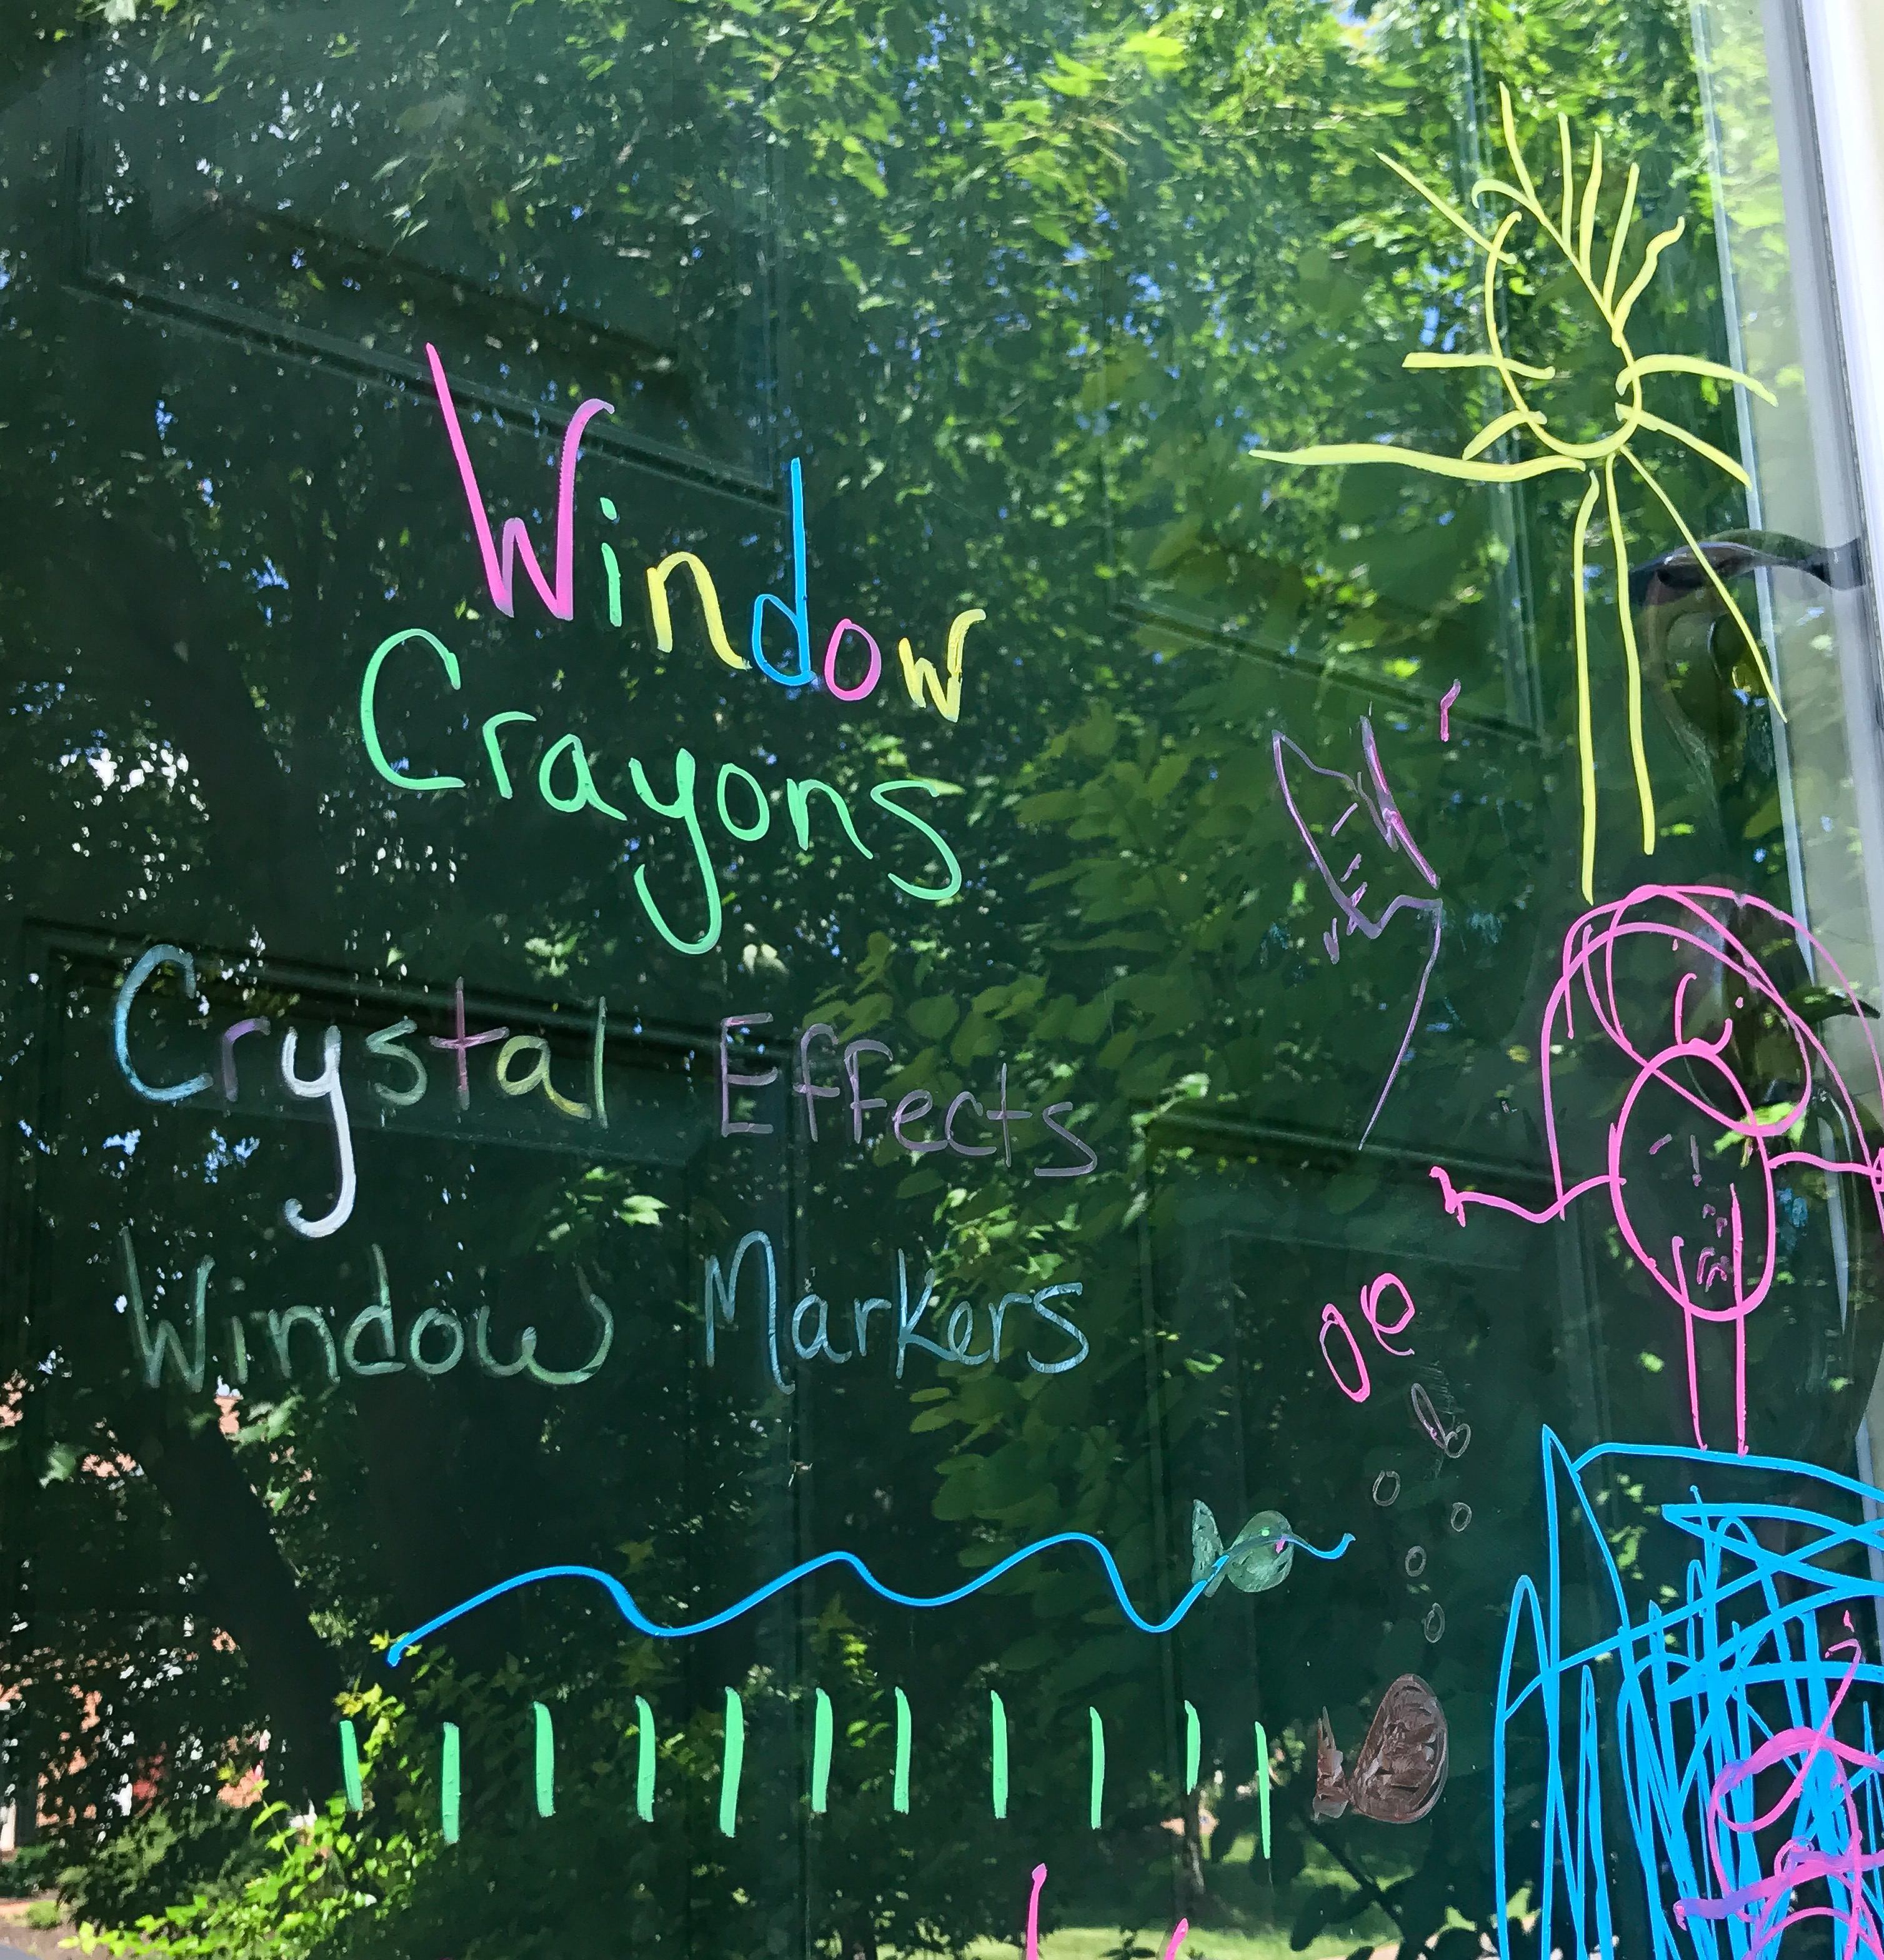 Window
Crayons
Crystal Effects
Window Markers